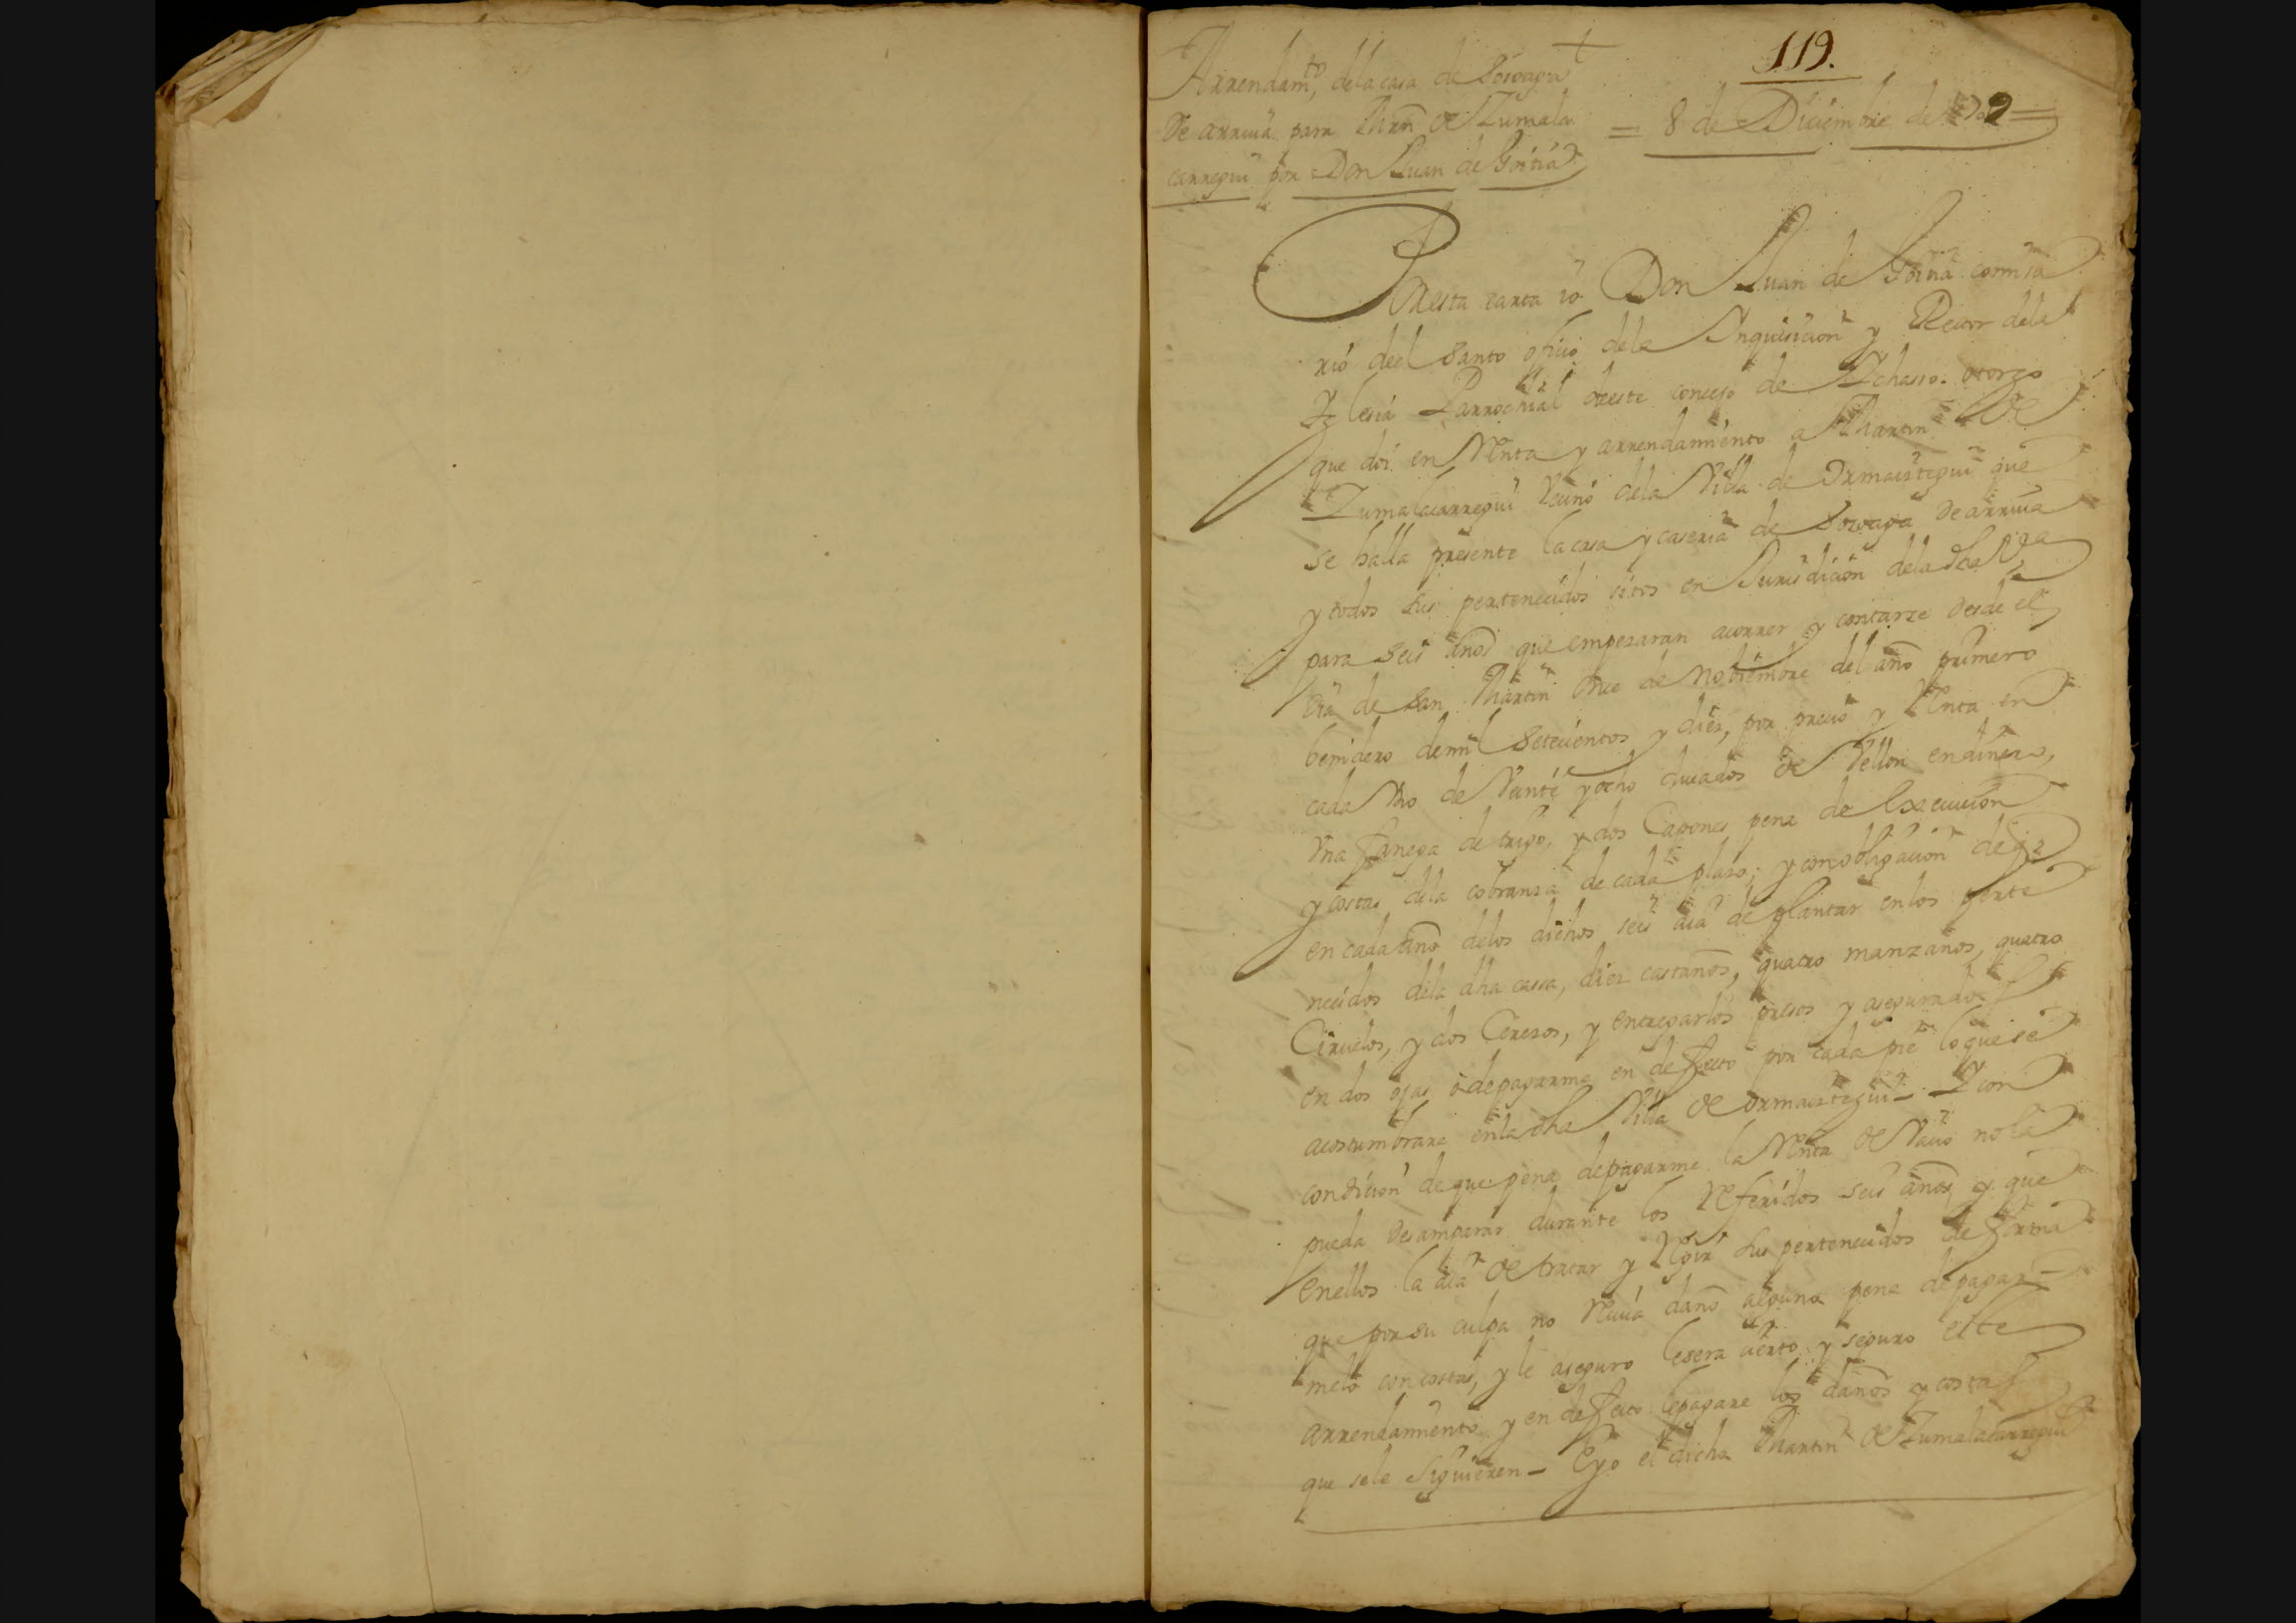 119.
Arrendamto, dela casa de
De arriua para Mrn de Zumala
carregui por Don Juan de Goitia
= 8 de Diciembre de 1709 =
Por esta carta io Don Juan de Goitia comisa
rio deel Santo oficio dela Inquisicion y Rector dela
Yglesia Parrochial deeste concejo de Ychasso. otorgo
que doi en Renta y arrendamiento a Martin de
Zumalacarregui Vecino dela Villa de Ormaiztegui que
se halla presente la casa y caseria de De arriua
y todos sus pertenecidos sitos en Jurisdicion dela dha Va
para seis años que empezaran acorrer y contarze desde el
dia de San Martin Onze de Nobiembre del año primero
benidero demil Setecientos y diez, por precio y Renta en
cada Vno de Veinte y ocho ducados de Vellon en dinero,
Vna fanega de trigo, y dos Capones pena de Execucion
y costas dela cobranza de cada plazo; y con obligacion de q
en cada año delos dichos seis aia de plantar enlos perte
necidos dela dha cassa, diez castaños, quatro manzanos, quatro
Ciruelos, y dos Cerezos, y entregarlos presos y asegurados
en dos ojas, o depagarme en defecto por cada pie loquese
acostumbrare enla dha Villa de ormaiztegui - Y con
condicion de que pena depagarme la Renta de Vacio nola
pueda desamparar durante los Referidos seis años, y que
enellos la aia de tratar y Regir sus pertenecidos de forma
que por su culpa no Reciua daño alguno pena depagar=
melo con costas, y le aseguro lesera cierto y seguro este
arrendamiento, y en defecto lepagare los daños y costas
que sele siguieren - Eyo el dicho Martin de Zumalacarregui